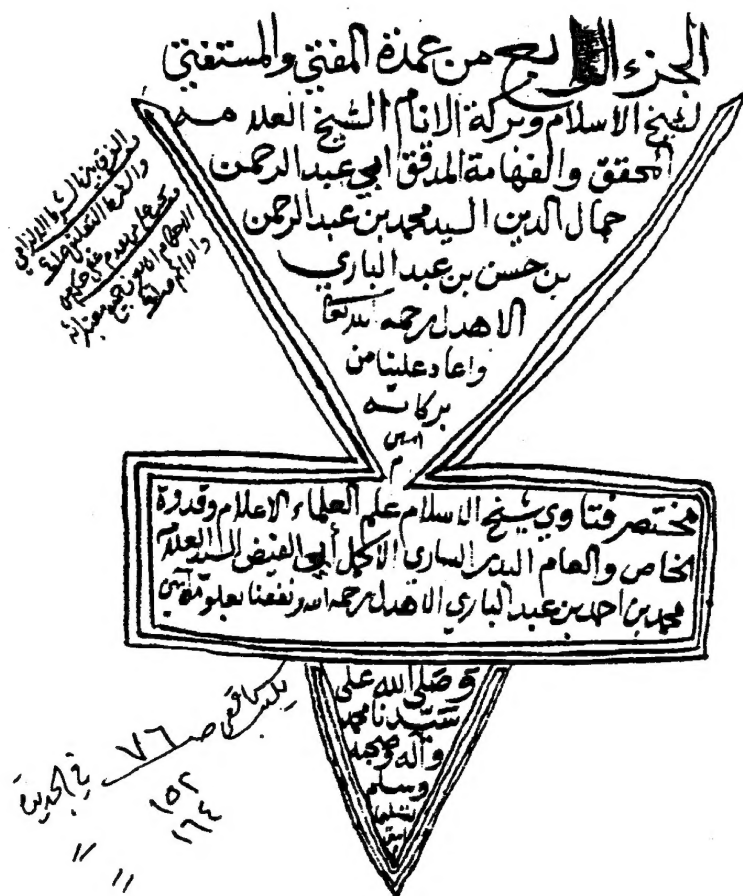 الجزء الرابع من عمدة المفتي والمستفتي
لشيخ الاسلام وبركة الانام الشيخ العلامه
المحقق والفهامة المدقق ابي عبد الرحمن
جمال الدين السيد محمد بن عبد الرحمن
بن حسن بن عبد الباري
الاهدل رحمه الله تعا
واعاد علينا من
بركاته
امين
م
مختصر فتاوي شيخ الاسلام علم العلماء الاعلام وقدوة
الخاص والعام البدر الساري الاكمل أبي الفيض السيد العلامة
محمد بن احمد بن عبد الباري الاهدل رحمه الله ونفعنا بعلومه آمين
وصلى الله على
سيدنا محمد
وآله وصحبه
وسلم
تسليما
الفرق بين الشرط الالزامي
والشرط التعليقي
ص ٧٦ في
١٥٢
١٦٤